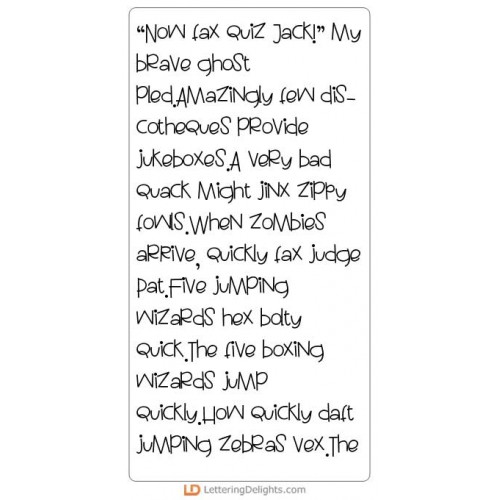 “Now fax quiz Jack!” My
brave ghost
pled.Amazingly few dis-
cotheques provide
jukeboxes.A very bad
quack might jinx zippy
fowls.When zombies
arrive, quickly fax judge
Pat.Five jumping
wizards hex bolty
quick.The five boxing
wizards jump
quickly.How quickly daft
jumping zebras vex.The
LD LetteringDelights.com